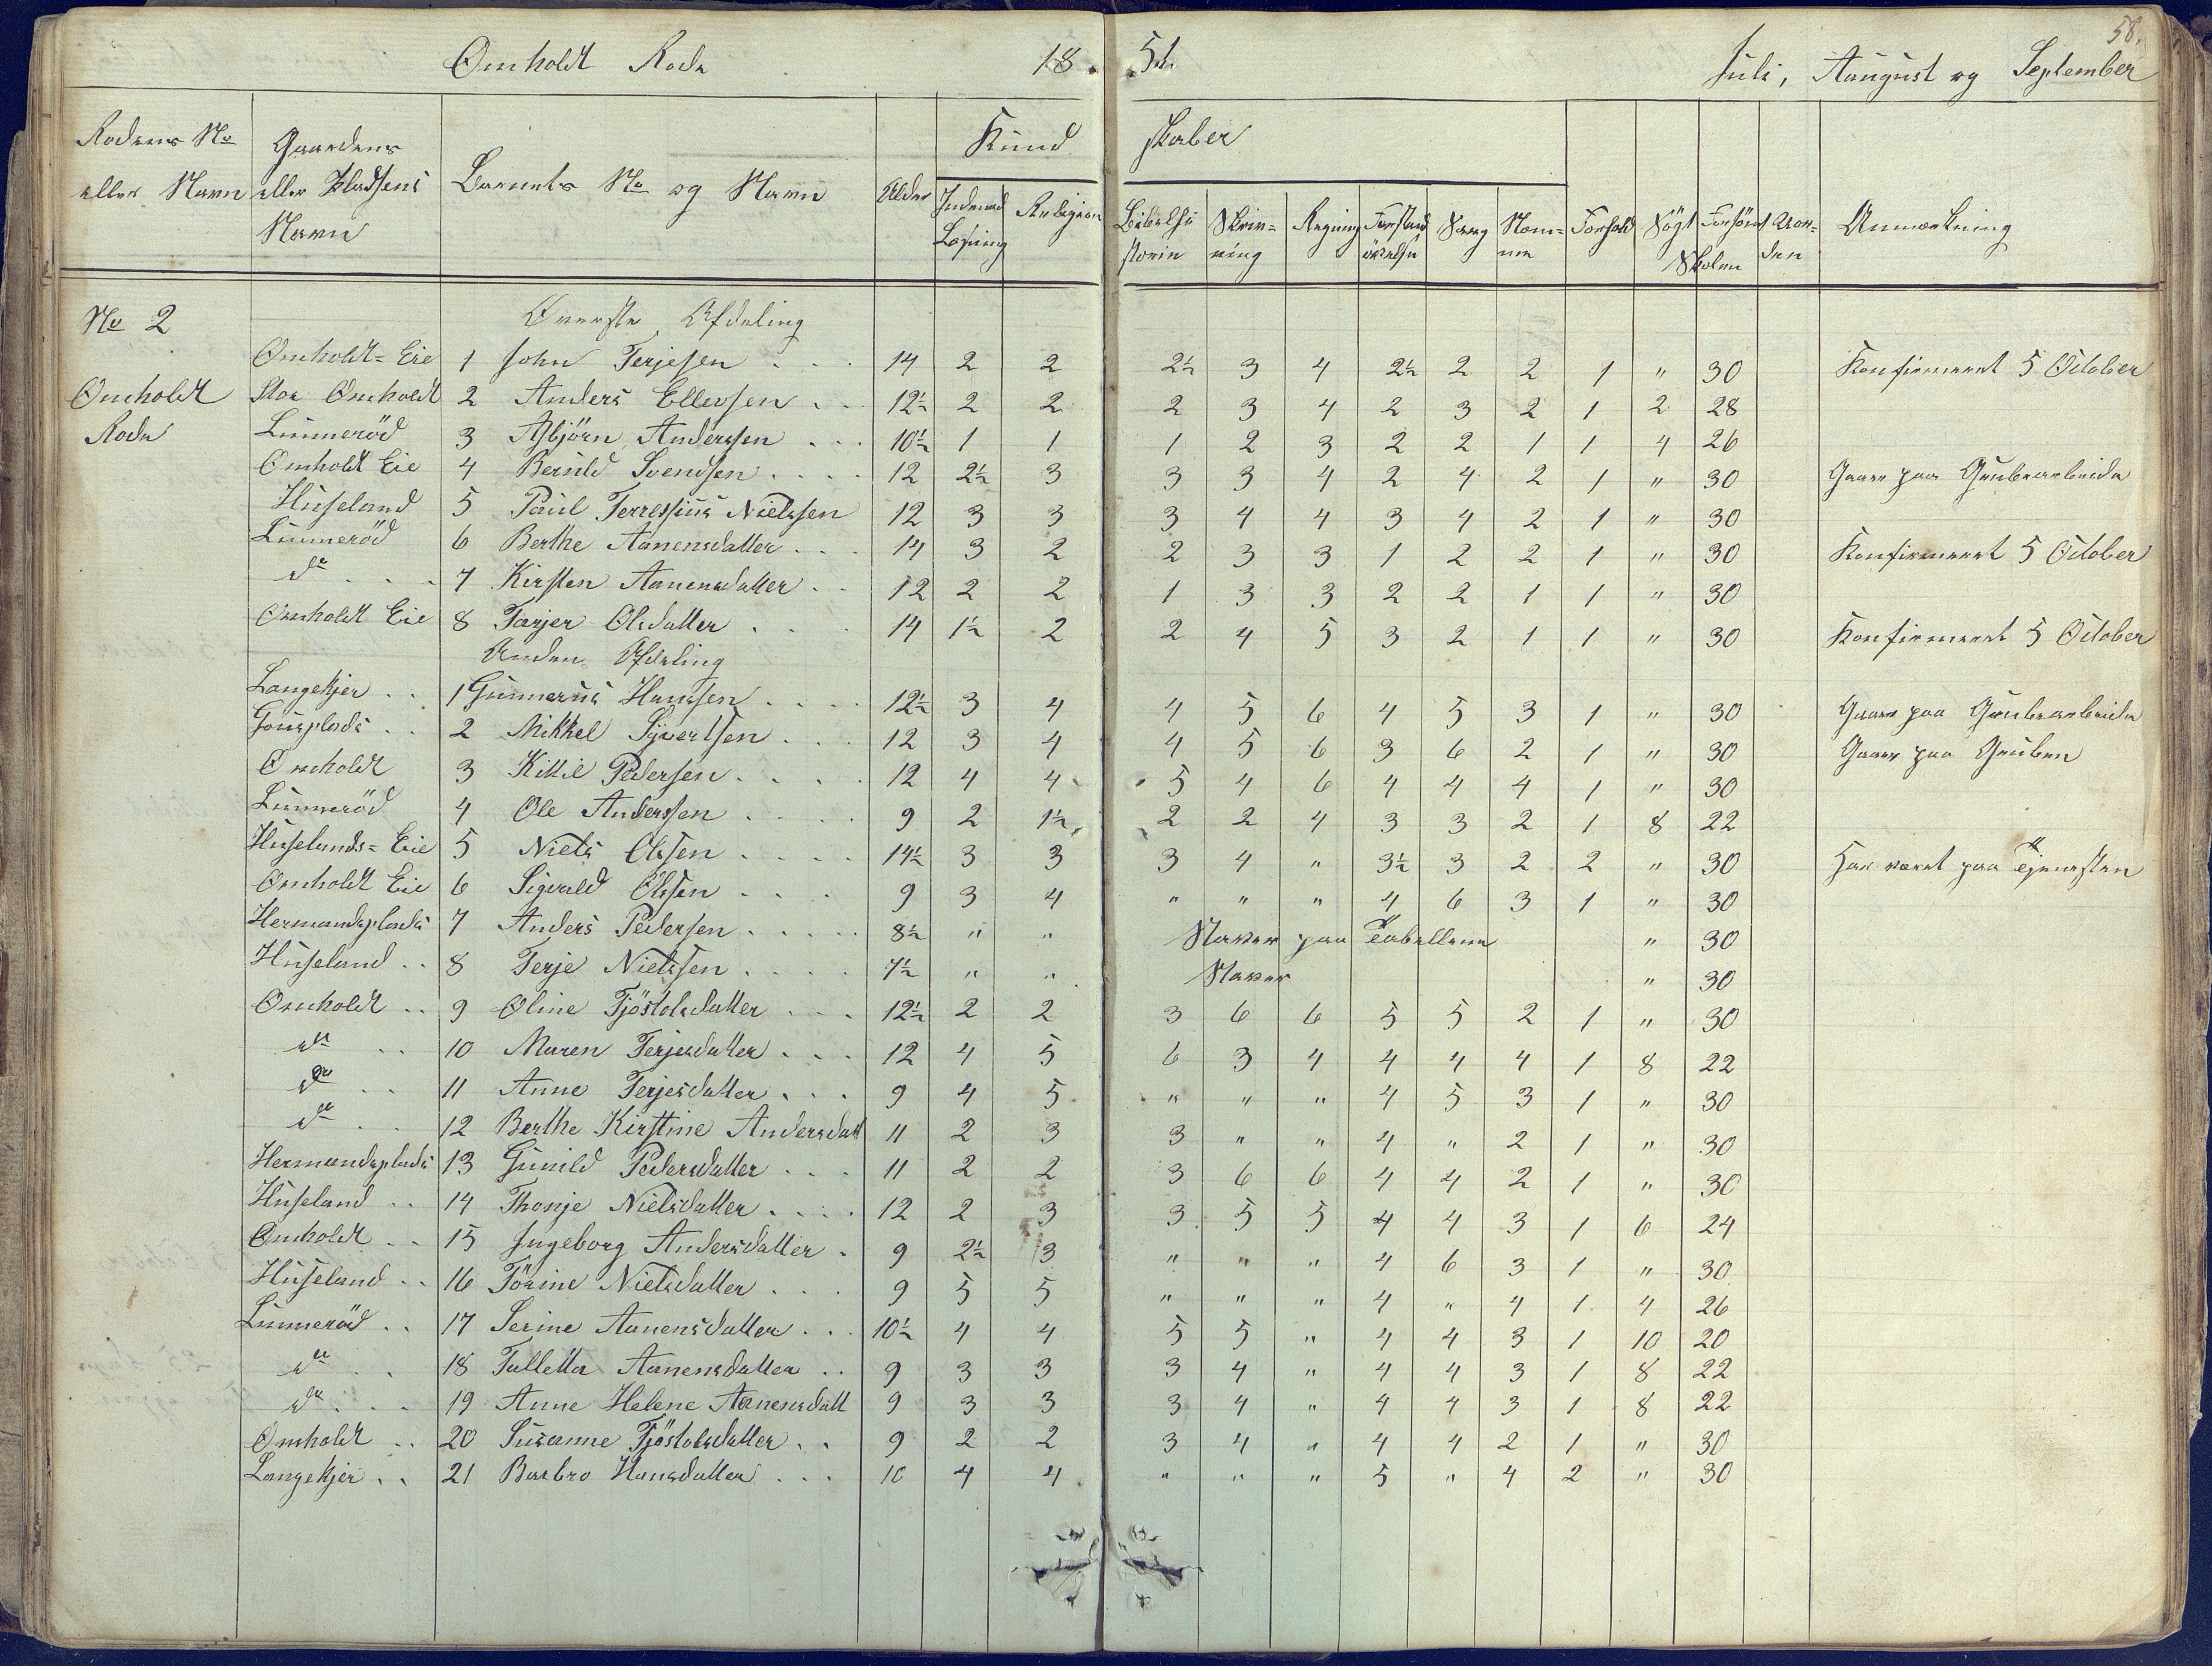 58.
Omholdt Rode 18. 51. Juli, Aaugust og September
Rodens No eller Navn | Gaardens eller Pladsens Navn | Barnets No og Navn | Alder | Kund skaber | Indenad Læsning | Religion | Bibelhi storie | Skriv= ning | Regning | Forstand øvelse | Sang | Nom= me | Forhold | Søgt | Forsömt | Skolen | Anmærkning
No 2 Øverste Afdeling
Omholdt=Eie 1 John Terjesen 14 2 2 2½ 3 4 2½ 2 2 1 " 30 Konfirmeret 5 October
Omholdt Stor Omholdt 2 Anders Ellevsen 12½ 2 2 2 3 4 2 3 2 1 2 28
Rode Limmeröd 3 Asbjörn Anderssen 10½ 1 1 1 2 3 2 2 1 1 4 26
Omholdt Eie 4 Berulf Svendsen 12 2½ 3 3 3 4 2 4 2 1 " 30 Gaaer paa Grubearbeide
Huseland 5 Paul Terressius Nielssen 12 3 3 3 4 4 3 4 2 1 " 30
Limmeröd 6 Berthe Aanensdatter 14 3 2 2 3 3 1 2 2 1 " 30 Konfirmeret 5 October
do 7 Kirsten Aanensdatter 12 2 2 1 3 3 2 2 1 1 " 30
Omholdt Eie 8 Tarjer Olsdatter 14 1½ 2 2 4 5 3 2 1 1 " 30 Konfirmeret 5 October
Anden Afdeling
Langekjer 1 Gunnerus Hanssen 12½ 3 4 4 5 6 4 5 3 1 " 30 Gaaer paa Grubearbeide
2 Mikkel Syvertsen 12 3 4 4 5 6 3 6 2 1 " 30 Gaaer paa Gruben
Omholdt 3 Kittil Pedersen 12 4 4 5 4 6 4 4 4 1 " 30
Limmeröd 4 Ole Anderssen 9 2 1½ 2 2 4 3 3 2 1 8 22
Huselands=Eie 5 Niels Olssen 14½ 3 3 3 4 " 3½ 3 2 2 " 30 Har været paa Tjenesten
Omholdt Eie 6 Sigvald Olssen 9 3 4 " " " 4 6 3 1 " 30
Hermandsplads 7 Anders Pedersen 8½ " " Staver paa Tabellene " 30
Huseland 8 Terje Nielssen 7½ " " Staver " 30
Omholdt 9 Oline Tjöstolsdatter 12½ 2 2 3 6 6 5 5 2 1 " 30
do 10 Maren Terjesdatter 12 4 5 6 3 4 4 4 4 1 8 22
do 11 Anne Terjesdatter 9 4 5 " " " 4 5 3 1 " 30
do 12 Berthe Kirstine Andersdatt 11 2 3 3 " " 4 " 2 1 " 30
Hermandsplads 13 Gunild Pedersdatter 11 2 2 3 6 6 4 4 2 1 " 30
Huseland 14 Thonje Nielsdatter 12 2 3 3 5 5 4 4 3 1 6 24
Omholdt 15 Ingeborg Andersdatter 9 2½ 3 " " " 4 6 3 1 " 30
Huseland 16 Törine Nielsdatter 9 5 5 " " " 4 " 4 1 4 26
Limmeröd 17 Serine Aanensdatter 10½ 4 4 5 5 " 4 4 3 1 10 20
do 18 Talletta Aanensdatter 9 3 3 3 4 " 4 4 3 1 8 22
do 19 Anne Helene Aanensdatt 9 3 3 3 4 " 4 4 3 1 8 22
Omholdt 20 Susanne Tjöstolsdatter 9 2 2 3 4 " 4 4 2 1 " 30
Langekjer 21 Barbro Hansdatter 10 4 4 " " " 5 " 4 2 " 30